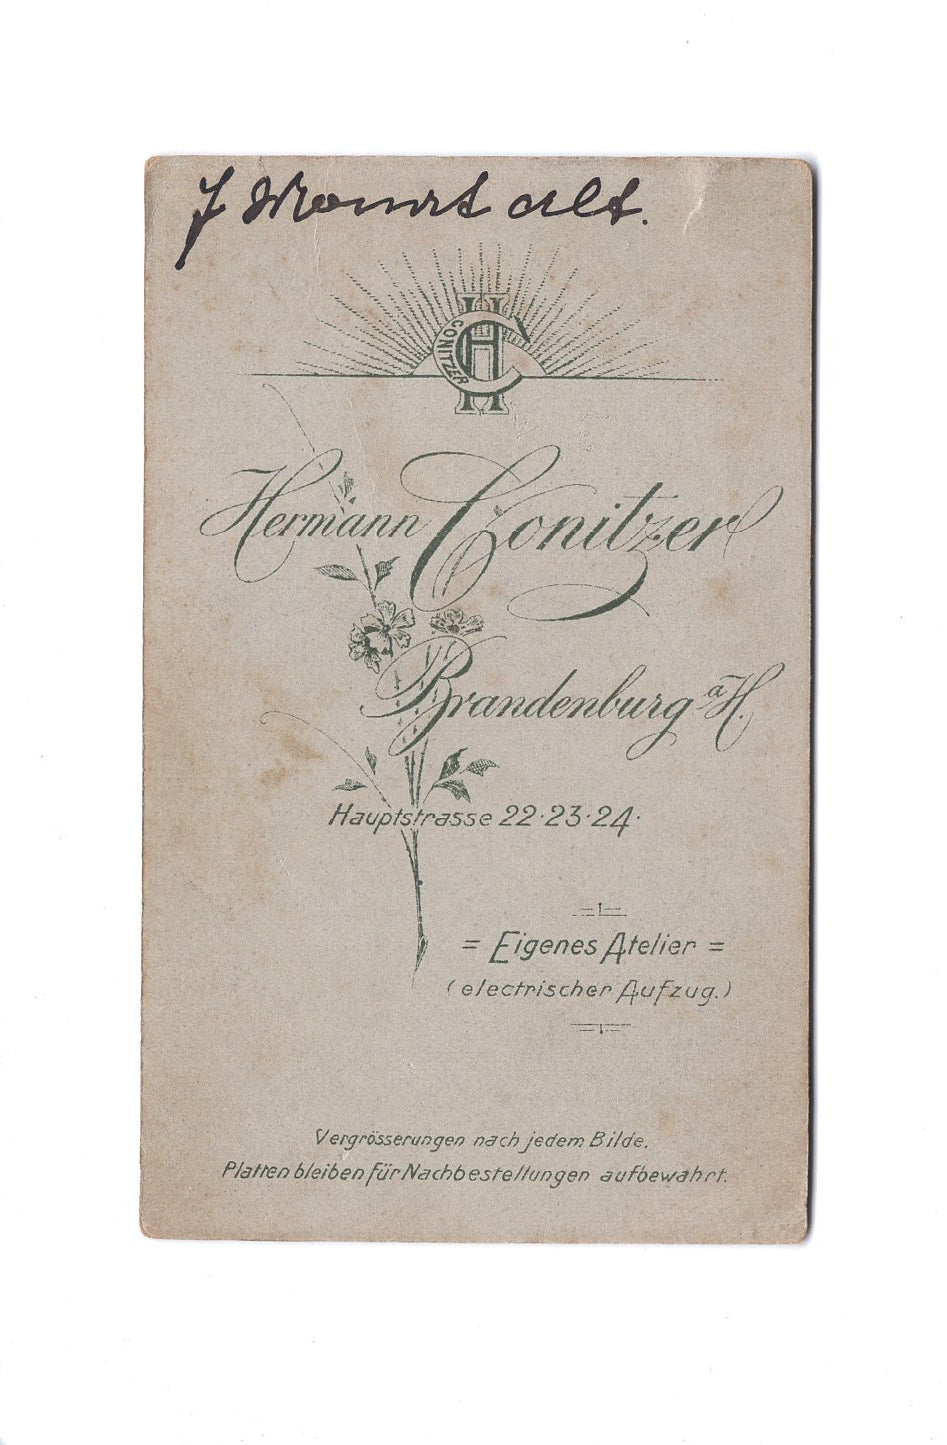 7 Monat alt.
CONITZER
HC
Hermann Conitzer
Brandenburg a/H.
Hauptstrasse 22·23·24·
= Eigenes Atelier =
(electrischer Aufzug.)
Vergrösserungen nach jedem Bilde.
Platten bleiben für Nachbestellungen aufbewahrt.